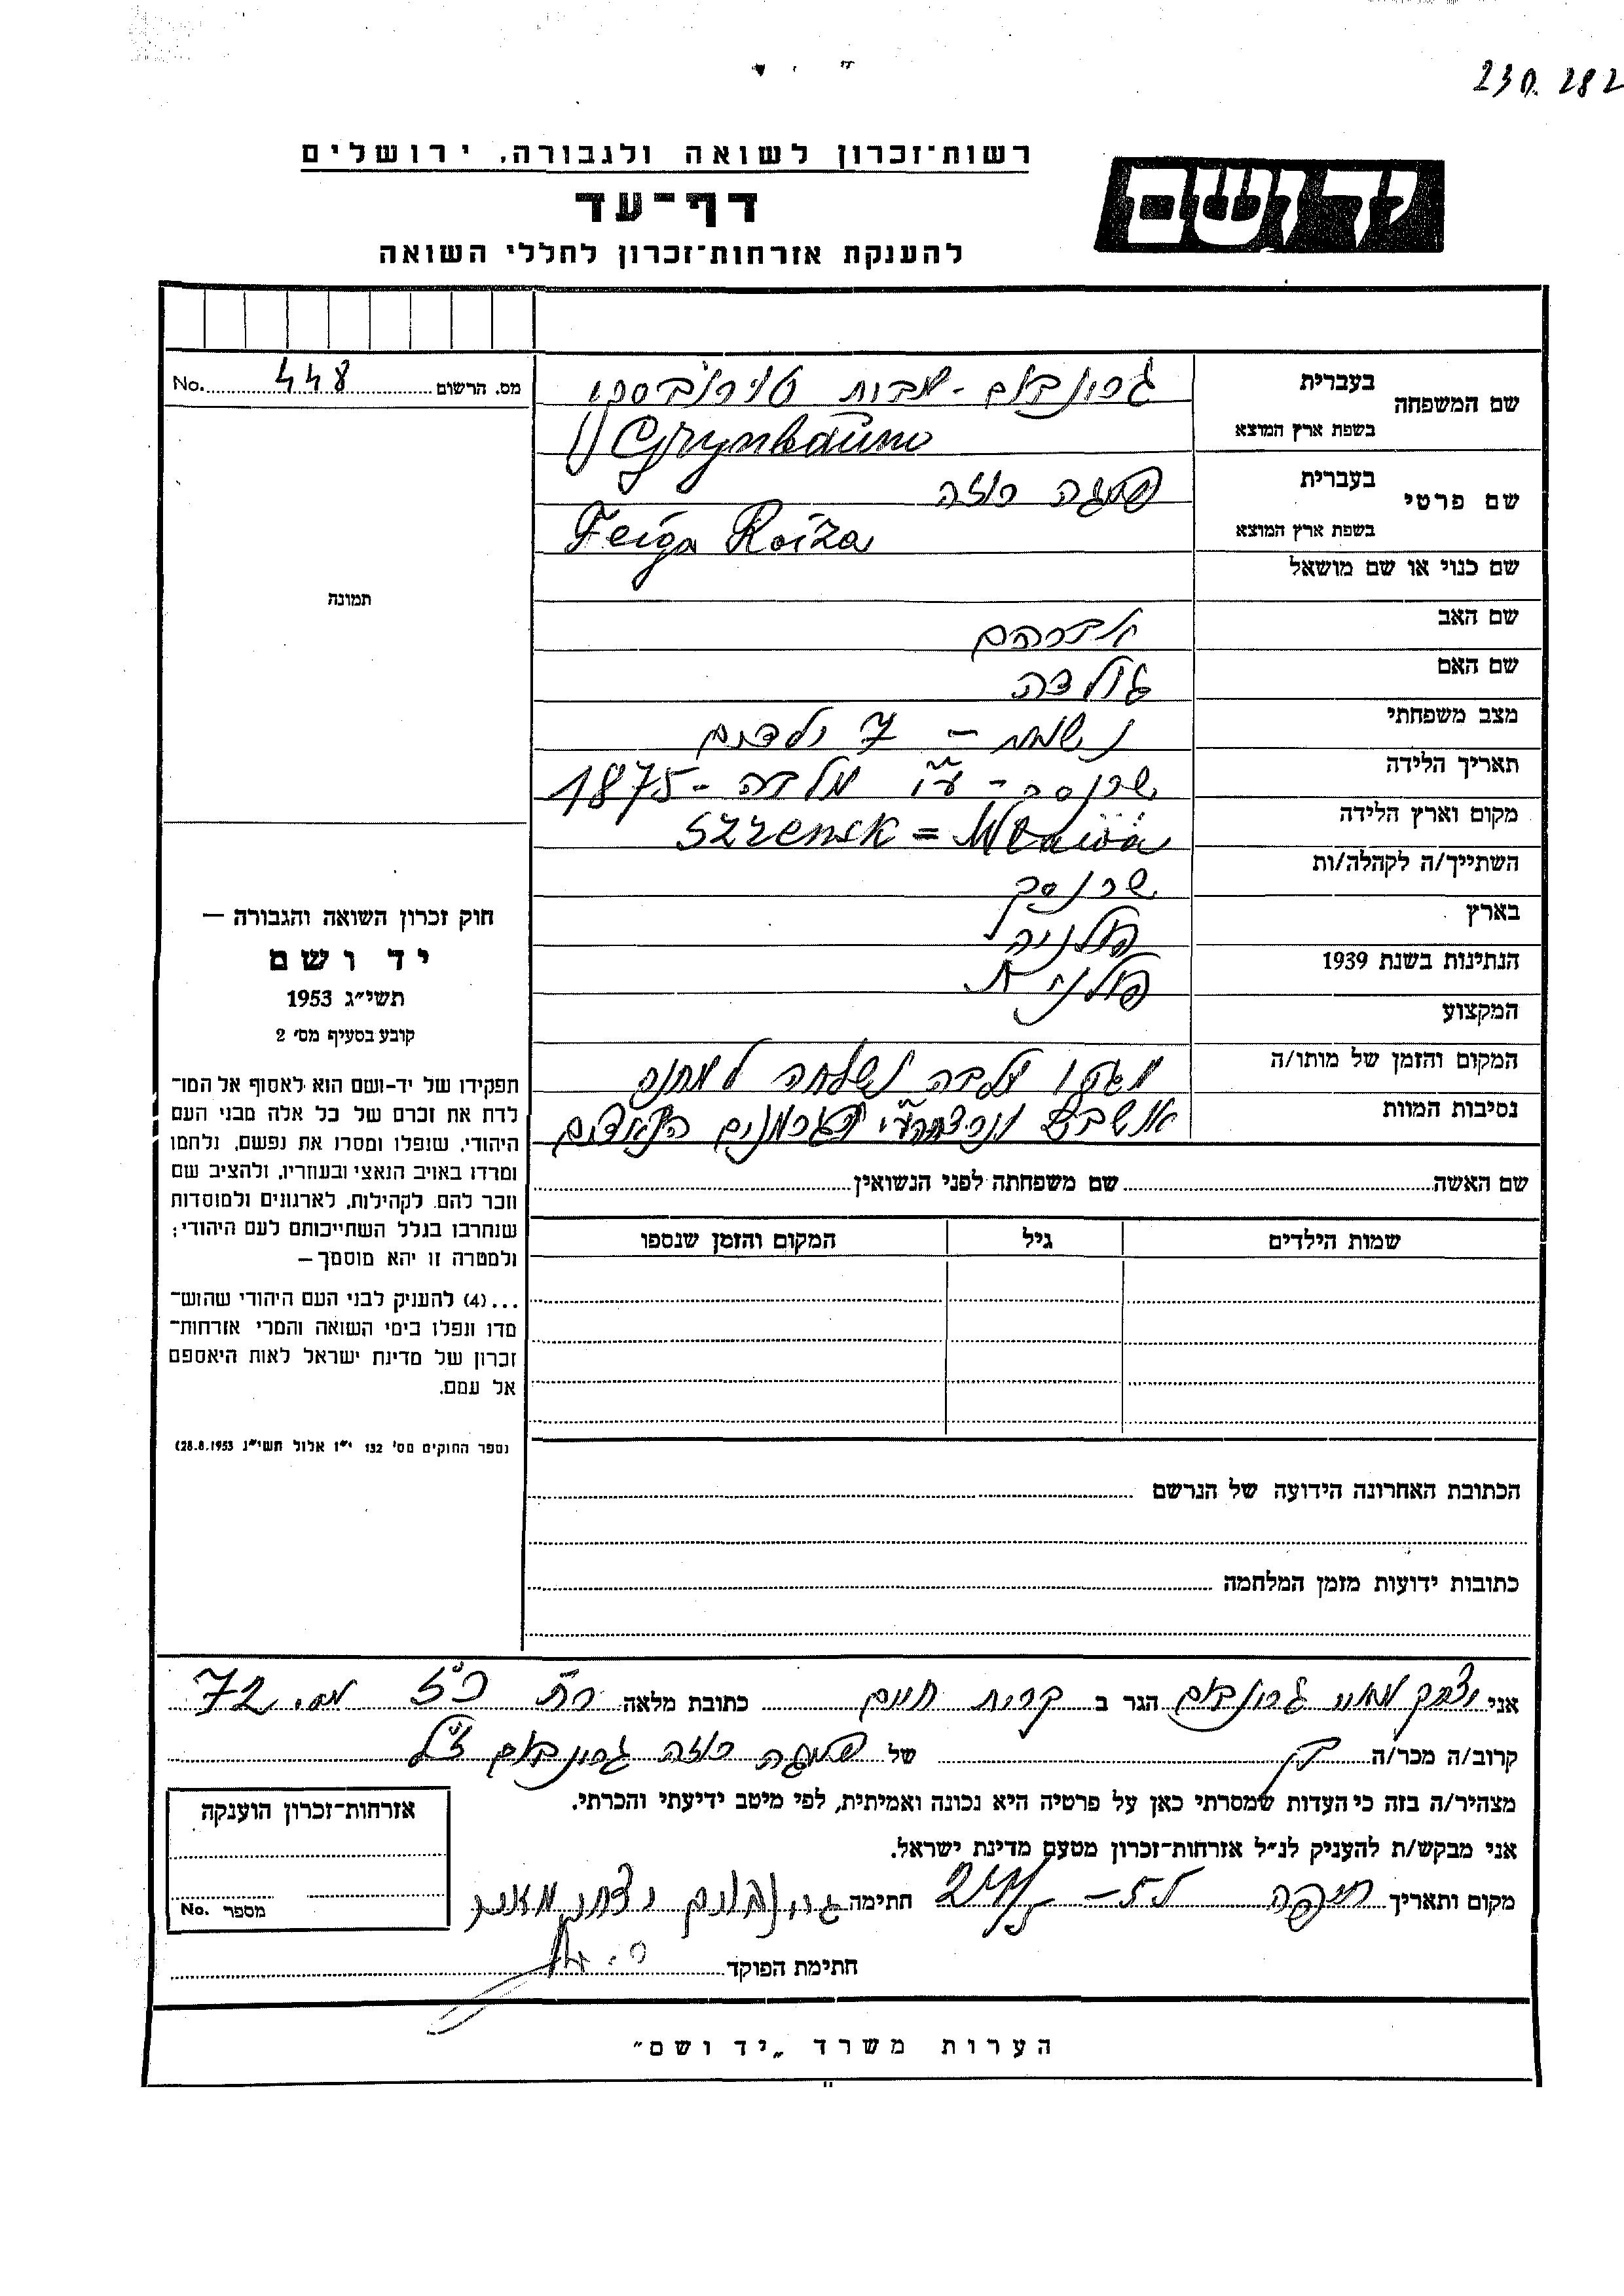 230. 282
רשות־זכרון לשואה ולגבורה, ירושלים
יד ושם
דף־עד
להענקת אזרחות־זכרון לחללי השואה
מס. הרשום 448 No.
שם המשפחה
בעברית
גרונבאום - מבית
בשפת ארץ המוצא
Grynbaum
שם פרטי
בעברית
פייגה רוזה
בשפת ארץ המוצא
Feiga Roiza
שם כנוי או שם מושאל
שם האב אברהם
שם האם גולדה
מצב משפחתי נשואה - 7 ילדים
תאריך הלידה שרנסק - ע״י מלבה - 1875
מקום וארץ הלידה Szrensk = Mlawa
השתייך/ה לקהלה/ות שרנסק
בארץ פולניה
הנתינות בשנת 1939 פולנית
המקצוע
המקום והזמן של מותו/ה מגטו מלבה נשלחה למחנה
נסיבות המוות אושביץ ונרצחה ע״י הגרמנים
שם האשה שם משפחתה לפני הנשואין
שמות הילדים גיל המקום והזמן שנספו
הכתובת האחרונה הידועה של הנרשם
כתובות ידועות מזמן המלחמה
תמונה
חוק זכרון השואה והגבורה —
יד ושם
תשי״ג 1953
קובע בסעיף מס׳ 2
תפקידו של יד-ושם הוא לאסוף אל המו־
לדת את זכרם של כל אלה מבני העם
היהודי, שנפלו ומסרו את נפשם, נלחמו
ומרדו באויב הנאצי ובעוזריו, ולהציב שם
וזכר להם, לקהילות, לארגונים ולמוסדות
שנחרבו בגלל השתייכותם לעם היהודי;
ולמטרה זו יהא מוסמך —
...(4) להעניק לבני העם היהודי שהוש־
מדו ונפלו בימי השואה והמרי אזרחות־
זכרון של מדינת ישראל לאות היאספם
אל עמם.
(ספר החוקים מס׳ 132 י״ז אלול תשי״ג 28.8.1953)
אני יצחק מאיר גרונבאום הגר ב קרית חיים כתובת מלאה רח כ״ז מס. 72
קרוב/ה מכר/ה בן של פייגה רוזה גרונבאום ז״ל
מצהיר/ה בזה כי העדות שמסרתי כאן על פרטיה היא נכונה ואמיתית, לפי מיטב ידיעתי והכרתי.
אני מבקש/ת להעניק לנ״ל אזרחות־זכרון מטעם מדינת ישראל.
מקום ותאריך חיפה חתימה גרינבוים יצחק מאיר
חתימת הפוקד
אזרחות־זכרון הוענקה
מספר No.
הערות משרד „יד ושם״